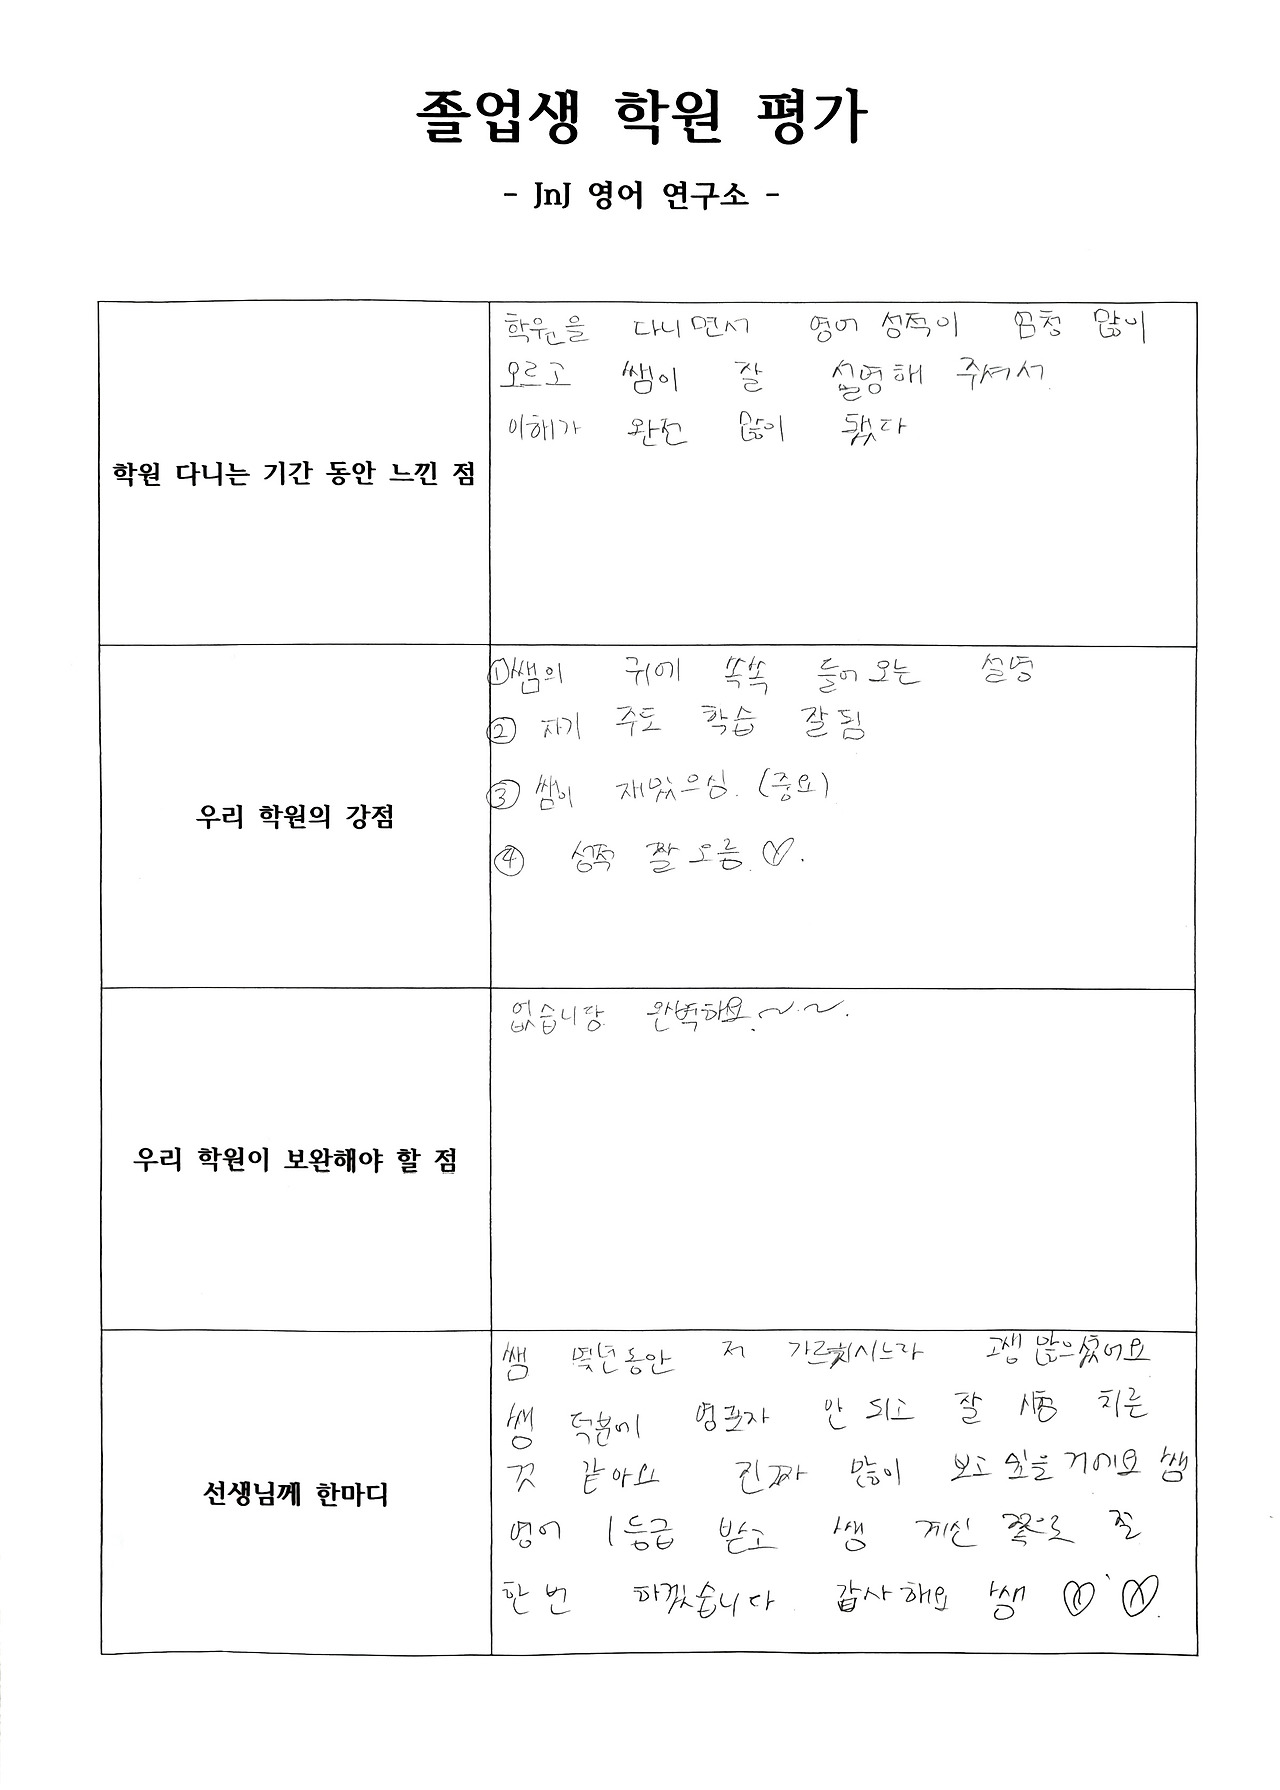 졸업생 학원 평가
- JnJ 영어 연구소 -
학원 다니는 기간 동안 느낀 점
학원을 다니면서 영어 성적이 엄청 많이
오르고 쌤이 잘 설명해 주셔서
이해가 완전 많이 됐다
우리 학원의 강점
①쌤의 귀에 쏙쏙 들어오는 설명
② 자기 주도 학습 잘됨
③ 쌤이 재밌으심. (중요)
④ 성적 짤 오름 ♡.
우리 학원이 보완해야 할 점
없습니당 완벽해요.~~.
선생님께 한마디
쌤 몇년동안 저 가르치시느라 고생 많으셨어요
쌤 덕분에 영포자 안 되고 잘 시험 치른
것 같아요 진짜 많이 보고 싶을 거에요 쌤
영어 1등급 받고 쌤 계신 쪽으로 절
한번 하겠습니다 감사해요 쌤 ♡♡.